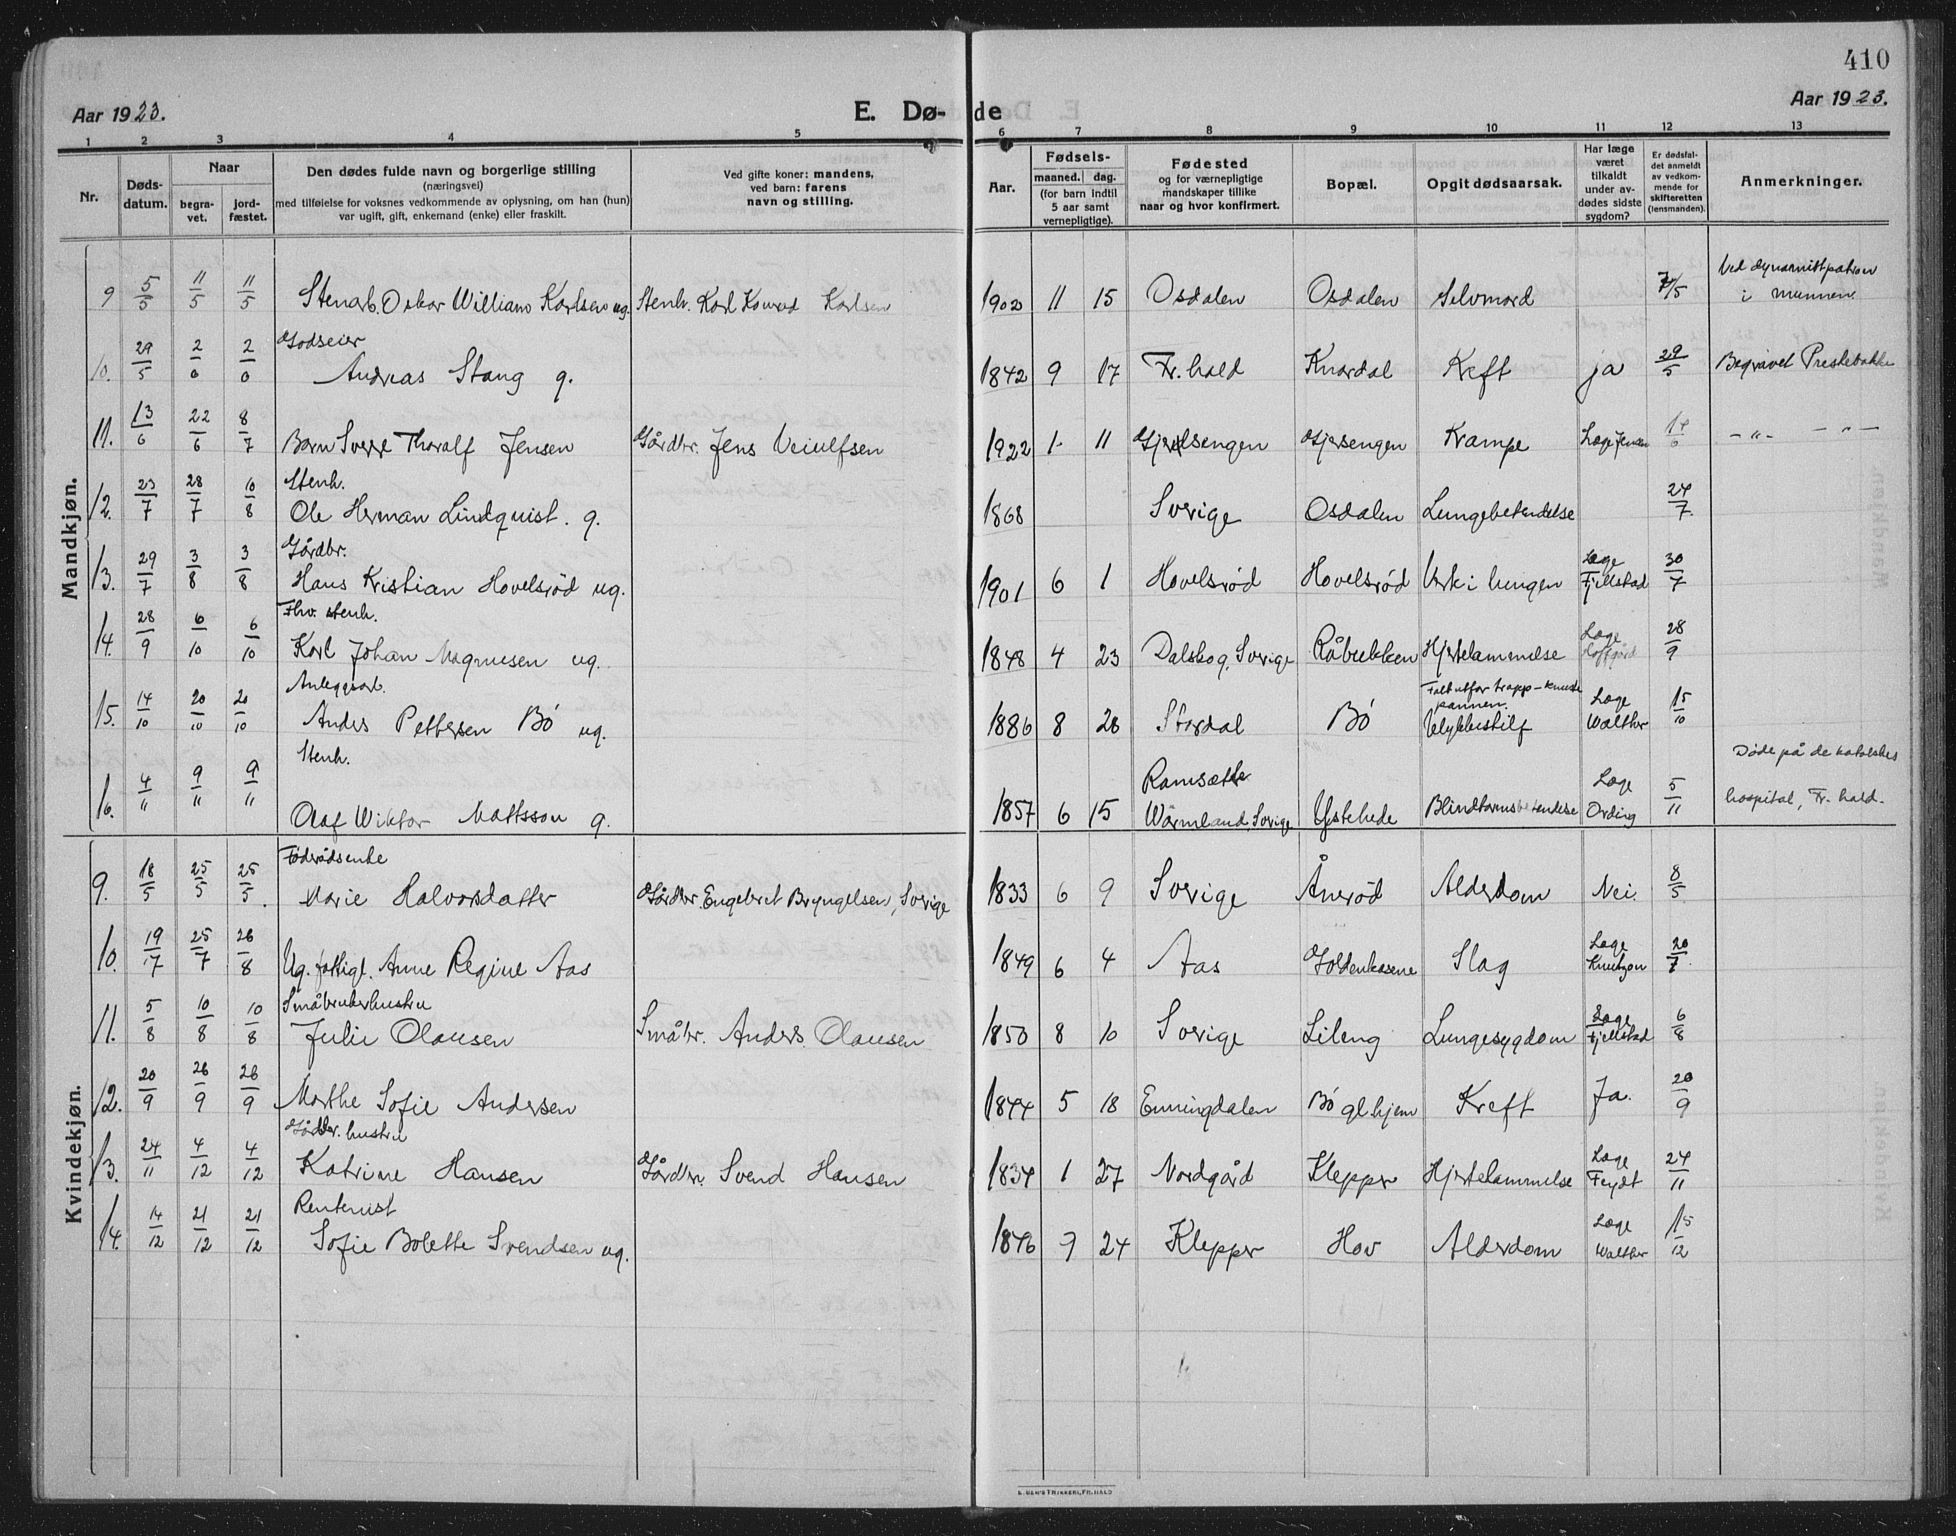 410
Aar 1923. E. Dø- de Aar 1923.
1 2 3 4 5 6 7 8 9 10 11 12 13
Nr.
Døds-
datum.
Naar
begra-
vet.
jord-
fæstet.
Den dødes fulde navn og borgerlige stilling
(næringsvei)
med tilføielse for voksnes vedkommende av oplysning, om han (hun)
var ugift, gift, enkemand (enke) eller fraskilt.
Ved gifte koner: mandens,
ved barn: farens
navn og stilling.
Aar.
Fødsels-
maaned. dag.
(for barn indtil
5 aar samt
vernepligtige).
Fødested
og for værnepligtige
mandskaper tillike
naar og hvor konfirmert.
Bopæl.
Opgit dødsaarsak.
Har læge
været
tilkaldt
under av-
dødes sidste
sygdom?
Er dødsfal-
det anmeldt
av vedkom-
mende for
skifteretten
(lensmanden).
Anmerkninger.
Mandkjøn.
9 5/5 11/5 11/5 Stenarb. Oskar William Karlsen ug. Stenh. Karl Konrad Karlsen 1902 11 15 Osdalen Osdalen Selvmord 7/5 Ved dynamittpatron
i munnen
Godseier
10. 29/5 2/6 2/6 Andreas Stang g. 1842 9 17 Fr.hald Knardal Kreft ja 29/5 Begravet Prestebakke
11. 13/6 22/6 8/7 Barn Sverre Thoralf Jensen Gårdbr. Jens Veiulfsen 1922 1 11 Gjersengen Gjersengen Krampe Læge Jensen 14/6 -"- -"-
Stenh.
12. 23/7 28/7 10/8 Ole Herman Lindquist. g. 1868 Sverige Osdalen Lungebetendelse 24/7.
Gårdbr.
13. 29/7 3/8 3/8 Hans Kristian Hovelsrød ug. 1901 6 1 Hovelsrød Hovelsrød Verk i lungen Læge Fjellstad 30/7
Fhv. stenh.
14. 28/9 6/10 6/10 Karl Johan Magnusen ug. 1848 4 23 Dalskog, Sverige Råbekken Hjertelammelse Læge 28/9
Anleggsarb.
15. 14/10 20/10 20/10 Anders Pettersen Bø ug. 1886 8 28 Stordal Bø Falt utfor trapp - knuste
pannen.
Ulykkestilf Læge Walther 15/10
Stenh.
16. 4/11 9/11 9/11 Olaf Wiktor Mattsson g. 1857 6 15 Ramsætte
Wärmland, Sverige Ystehede Blindtarmsbetendelse Læge Ording 5/11 Døde på de katolskes
hospital, Fr.hald.
Kvindekjøn.
Føderådsenke
9. 18/5 25/5 25/5. Marie Halvorsdatter Gårdbr. Engebret Bryngelsen, Sverige 1833 6 9 Sverige Ånerød Alderdom Nei. 8/5
10. 19/7 25/7 26/8 Ug. fattigl. Anne Regine Aas 1849 6 4 Aas Goldenkasene Slag Læge Knutzon 20/7.
Småbrukerhustru
11. 5/8 10/8 10/8 Julie Olausen Småbr. Anders Olausen 1850 8 10 Sverige Lileng Lungesygdom Læge Fjellstad 6/8
12. 20/9 26/9 26/9 Marthe Sofie Andersen 1844 5 18 Enningdalen Bø gl.hjem Kreft Ja. 20/9
Gårdbr. hustru
13. 24/11 4/12 4/12 Katrine Hansen Gårdbr. Svend Hansen 1834 1 27 Nordgård Klepper Hjertelammelse Læge Feydt 24/11
Rentenist
14. 14/12 21/12 21/12 Sofie Bolette Svendsen ug. 1846 9 24 Klepper Hov Alderdom Læge Walther 15/12